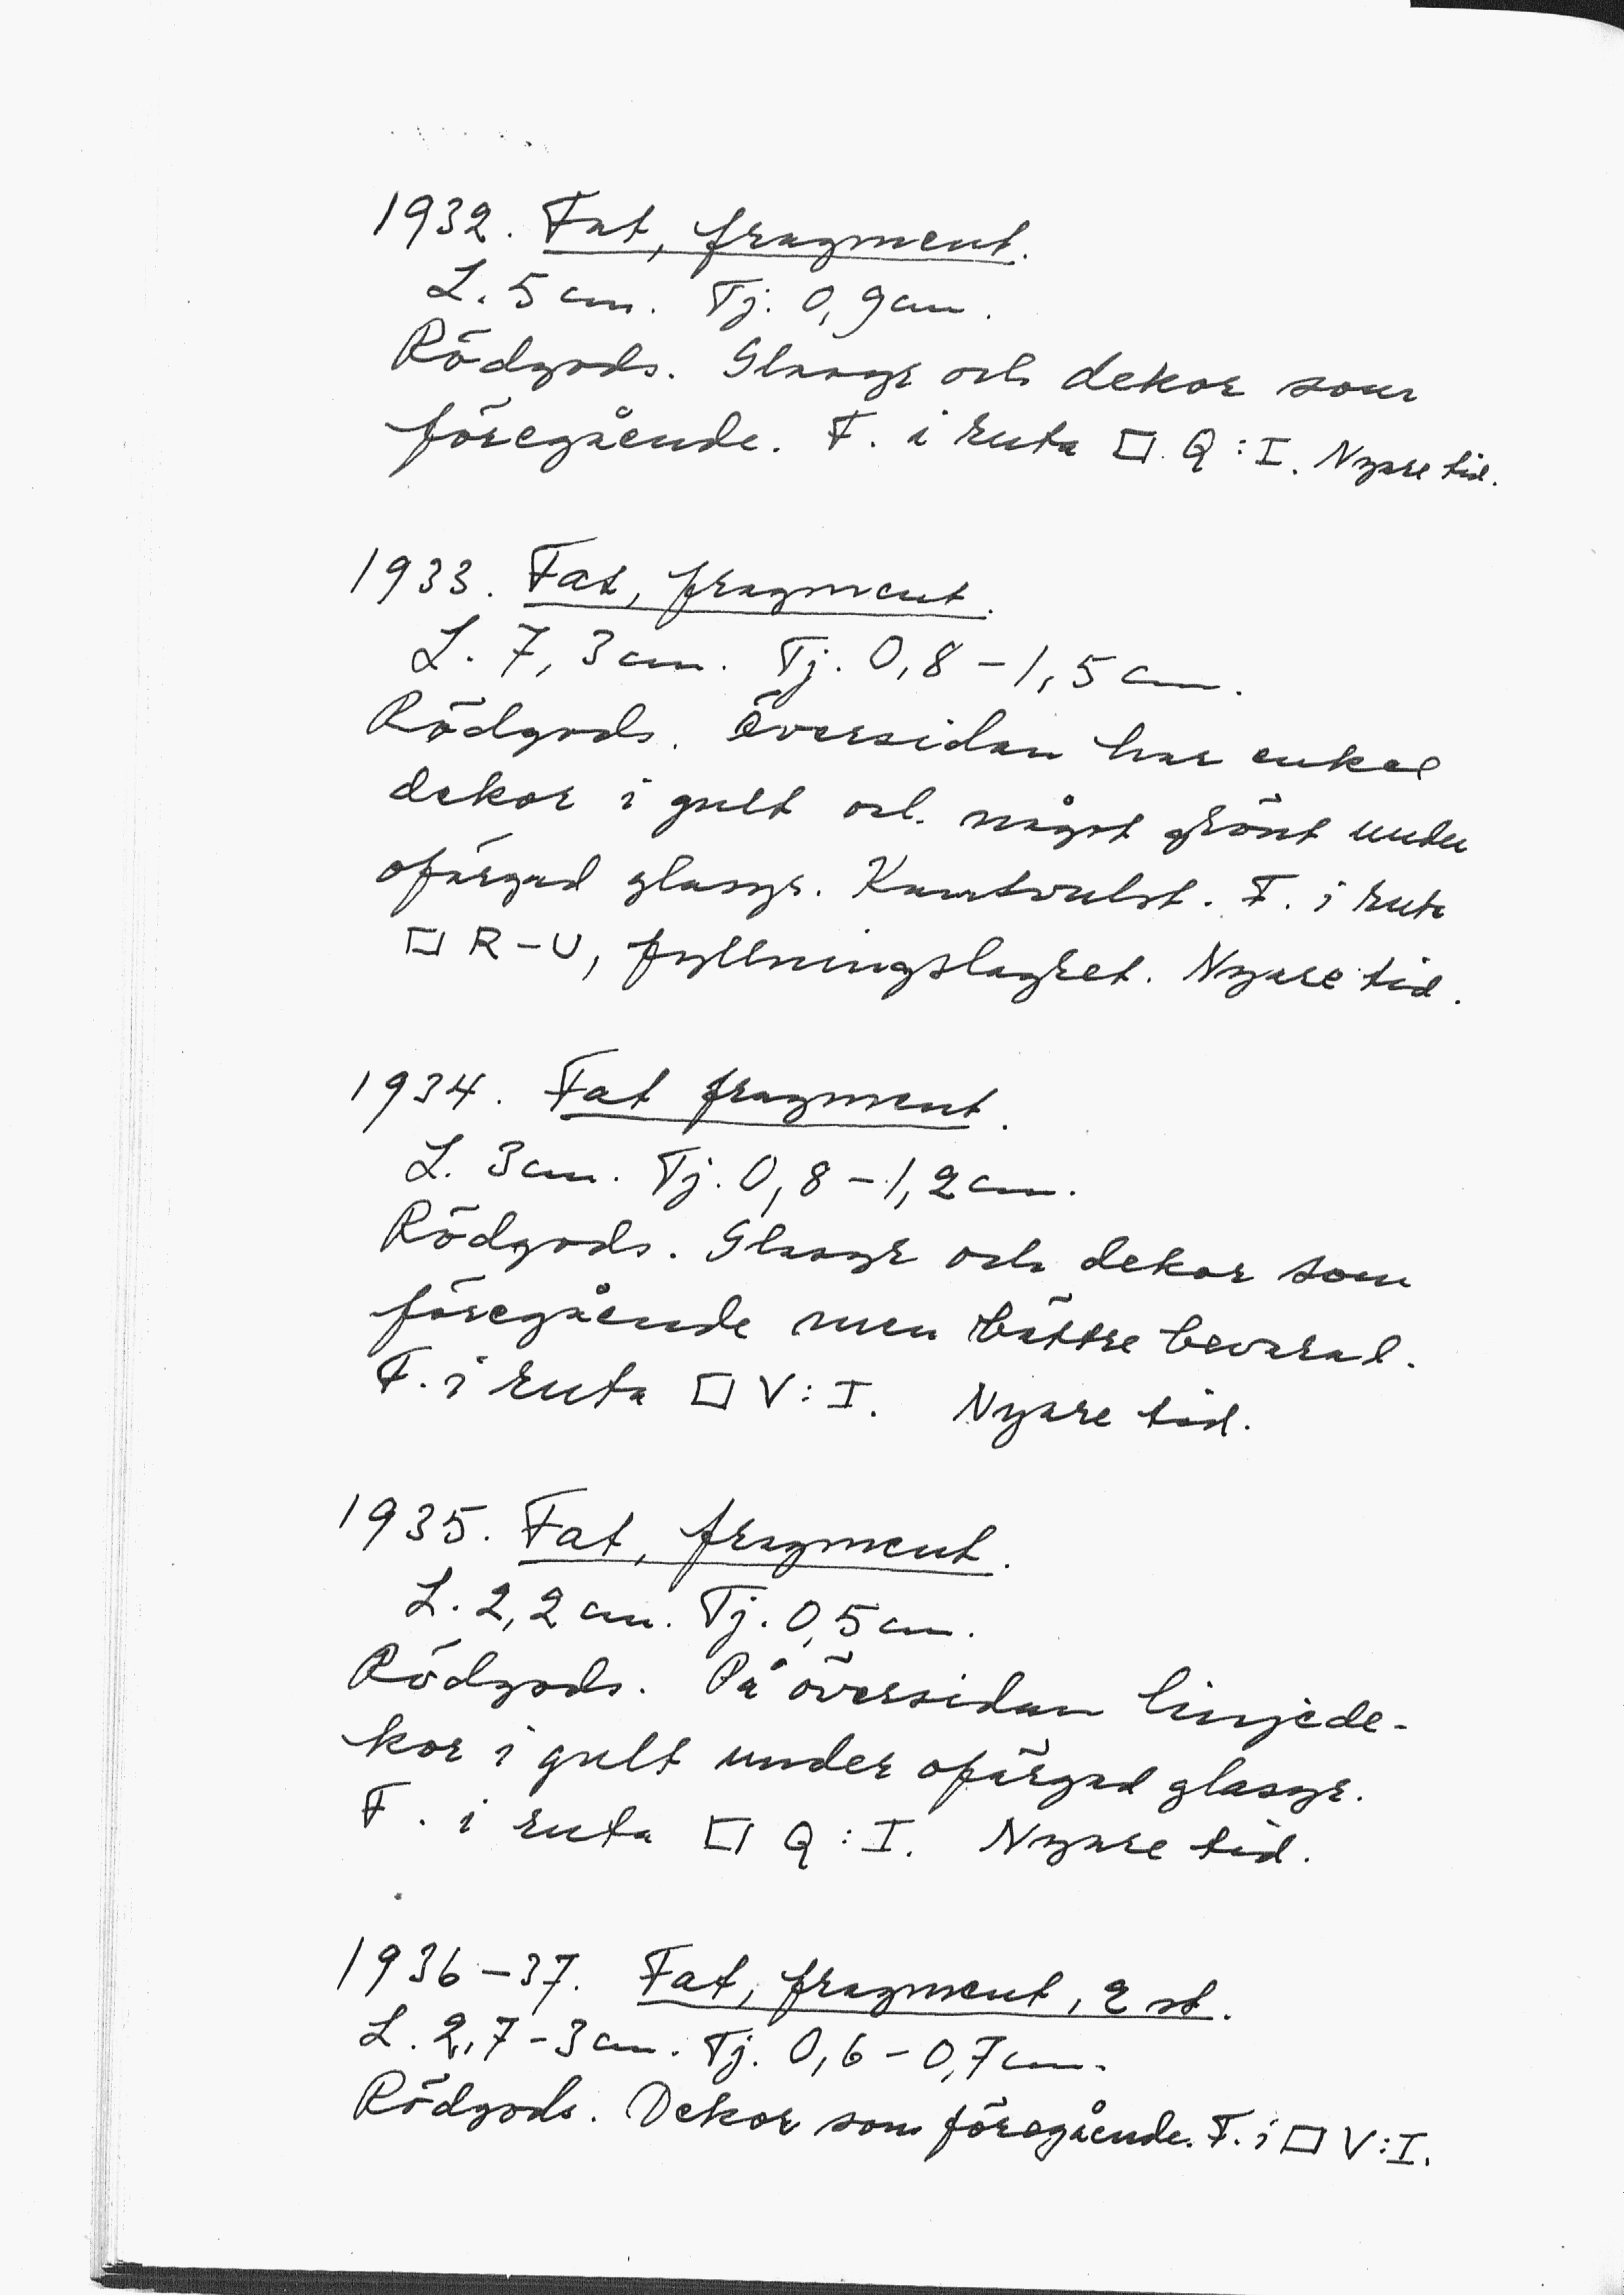 1932. Fat, fragment.
L. 5 cm. Tj. 0,9 cm.
Rödgods. Glasyr och dekor som
föregående. F. i ruta □ Q:I. Nyare tid.
1933. Fat, fragment.
L. 7,3 cm. Tj. 0,8-1,5 cm.
Rödgods. Översidan har enkel
dekor i gult och något grönt under
ofärgad glasyr. Kantvulst. F. i ruta
□ R-U, fyllningslagret. Nyare tid.
1934. Fat fragment.
L. 3 cm. Tj. 0,8-1,2 cm.
Rödgods. Glasyr och dekor som
föregående men bättre bevarad.
F. i ruta □ V:I. Nyare tid.
1935. Fat, fragment.
L. 2,2 cm. Tj. 0,5 cm.
Rödgods. På översidan linjede-
kor i gult under ofärgad glasyr.
F. i ruta □ Q:I. Nyare tid.
1936-37. Fat, fragment, 2 st.
L. 2,7-3 cm. Tj. 0,6-0,7 cm.
Rödgods. Dekor som föregående. F. i □ V:I.